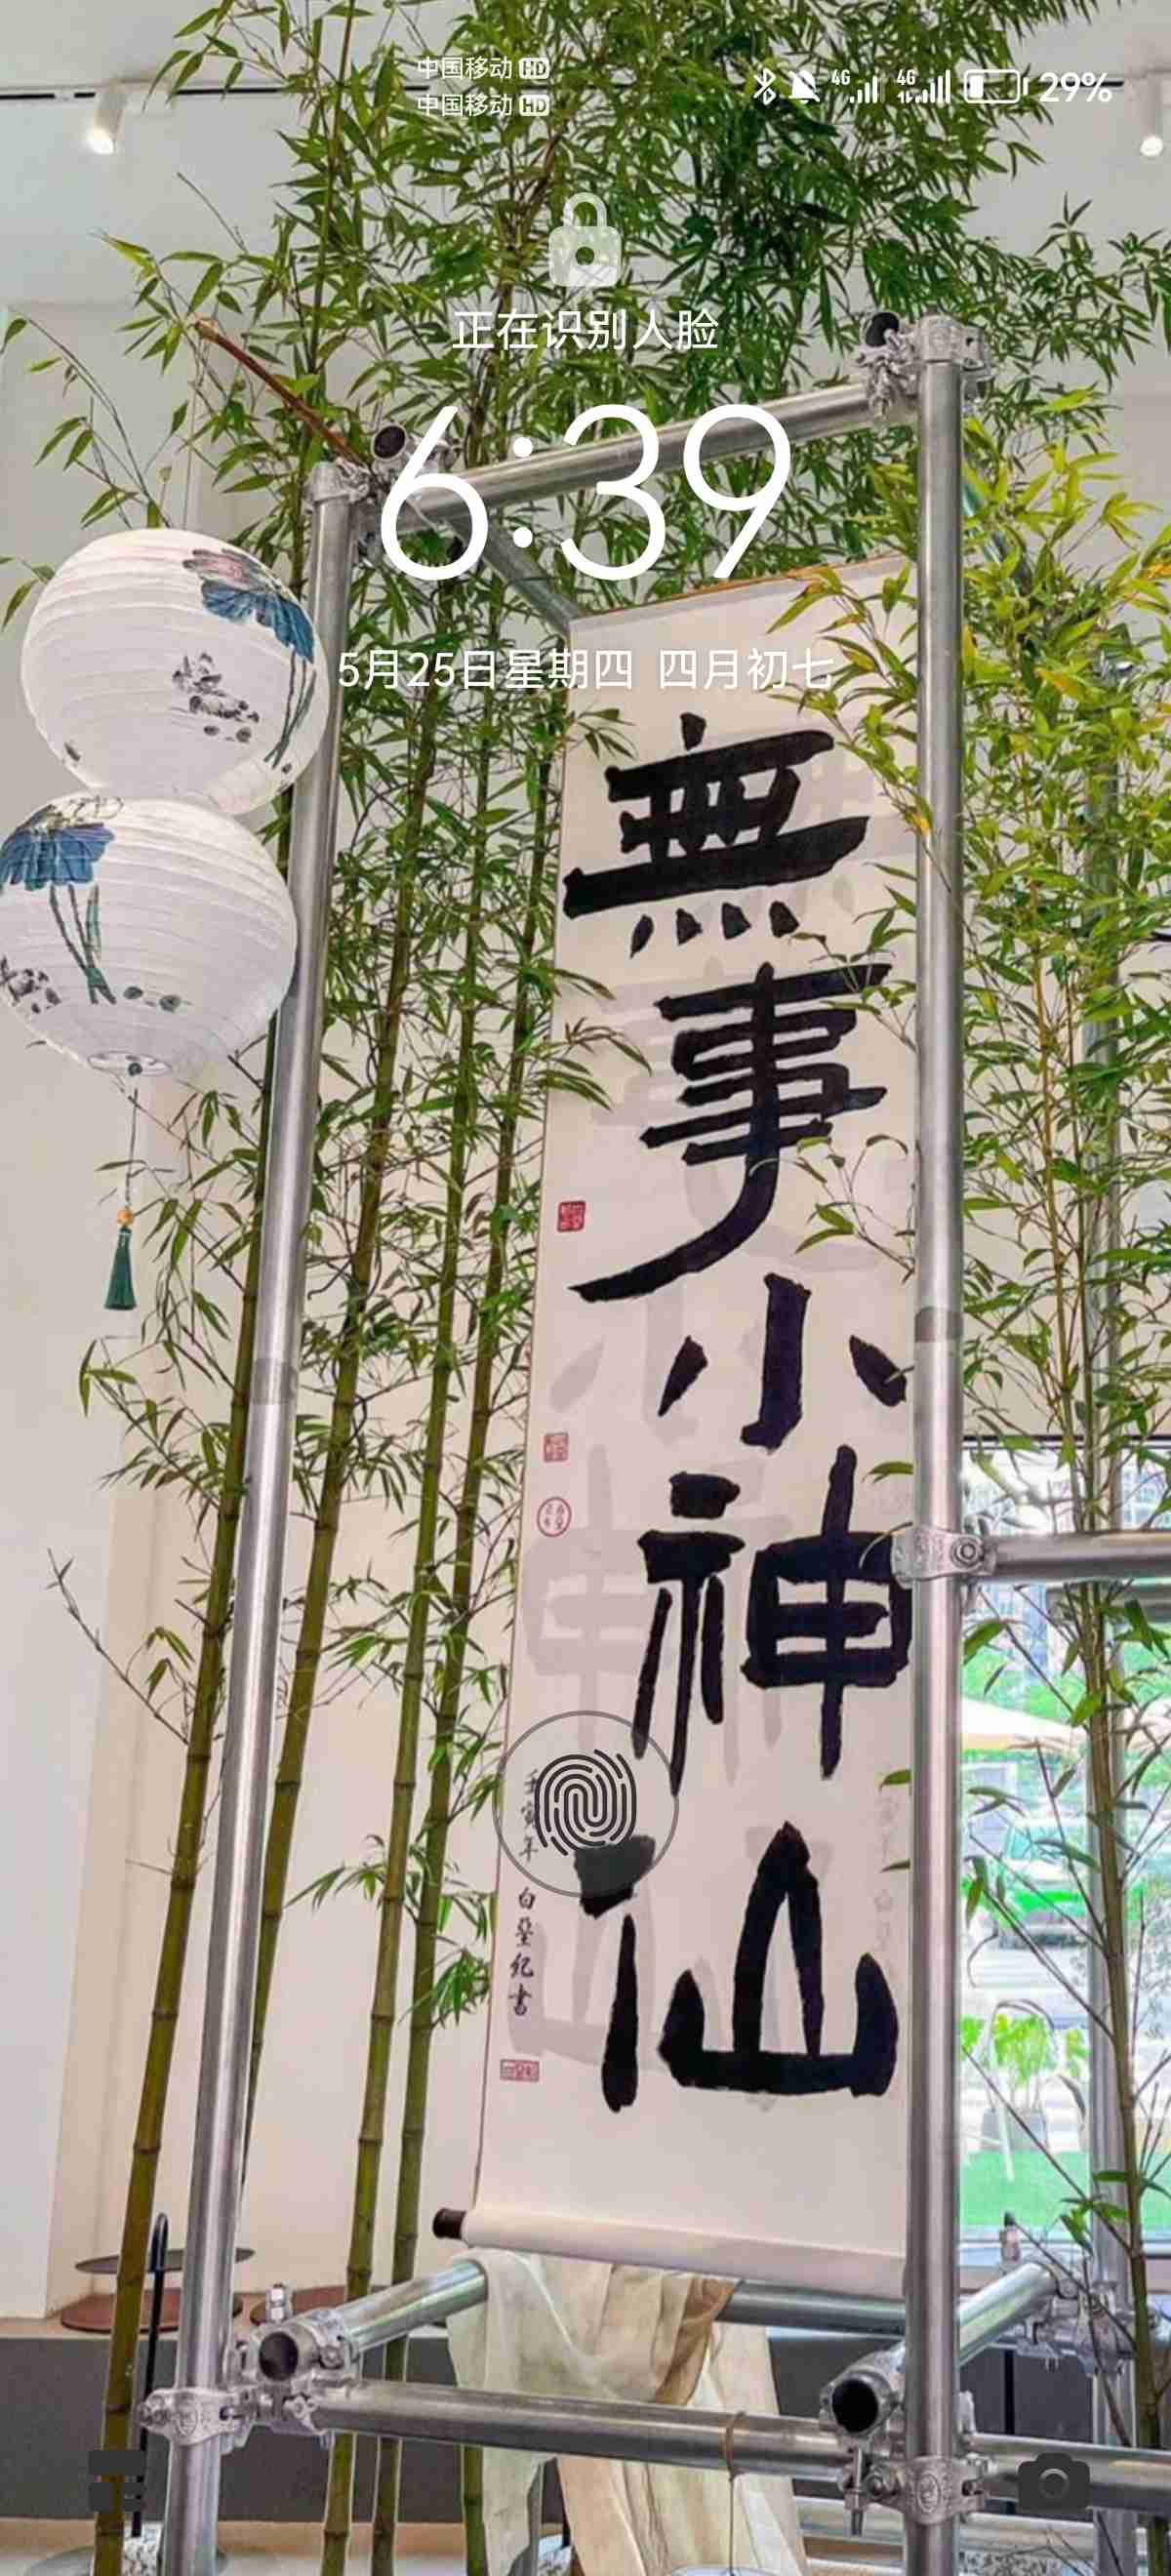 中国移动 HD
中国移动 HD
4G 4G 29%
正在识别人脸
6:39
5月25日星期四 四月初七
無事小神仙
壬寅年 白墨紀書